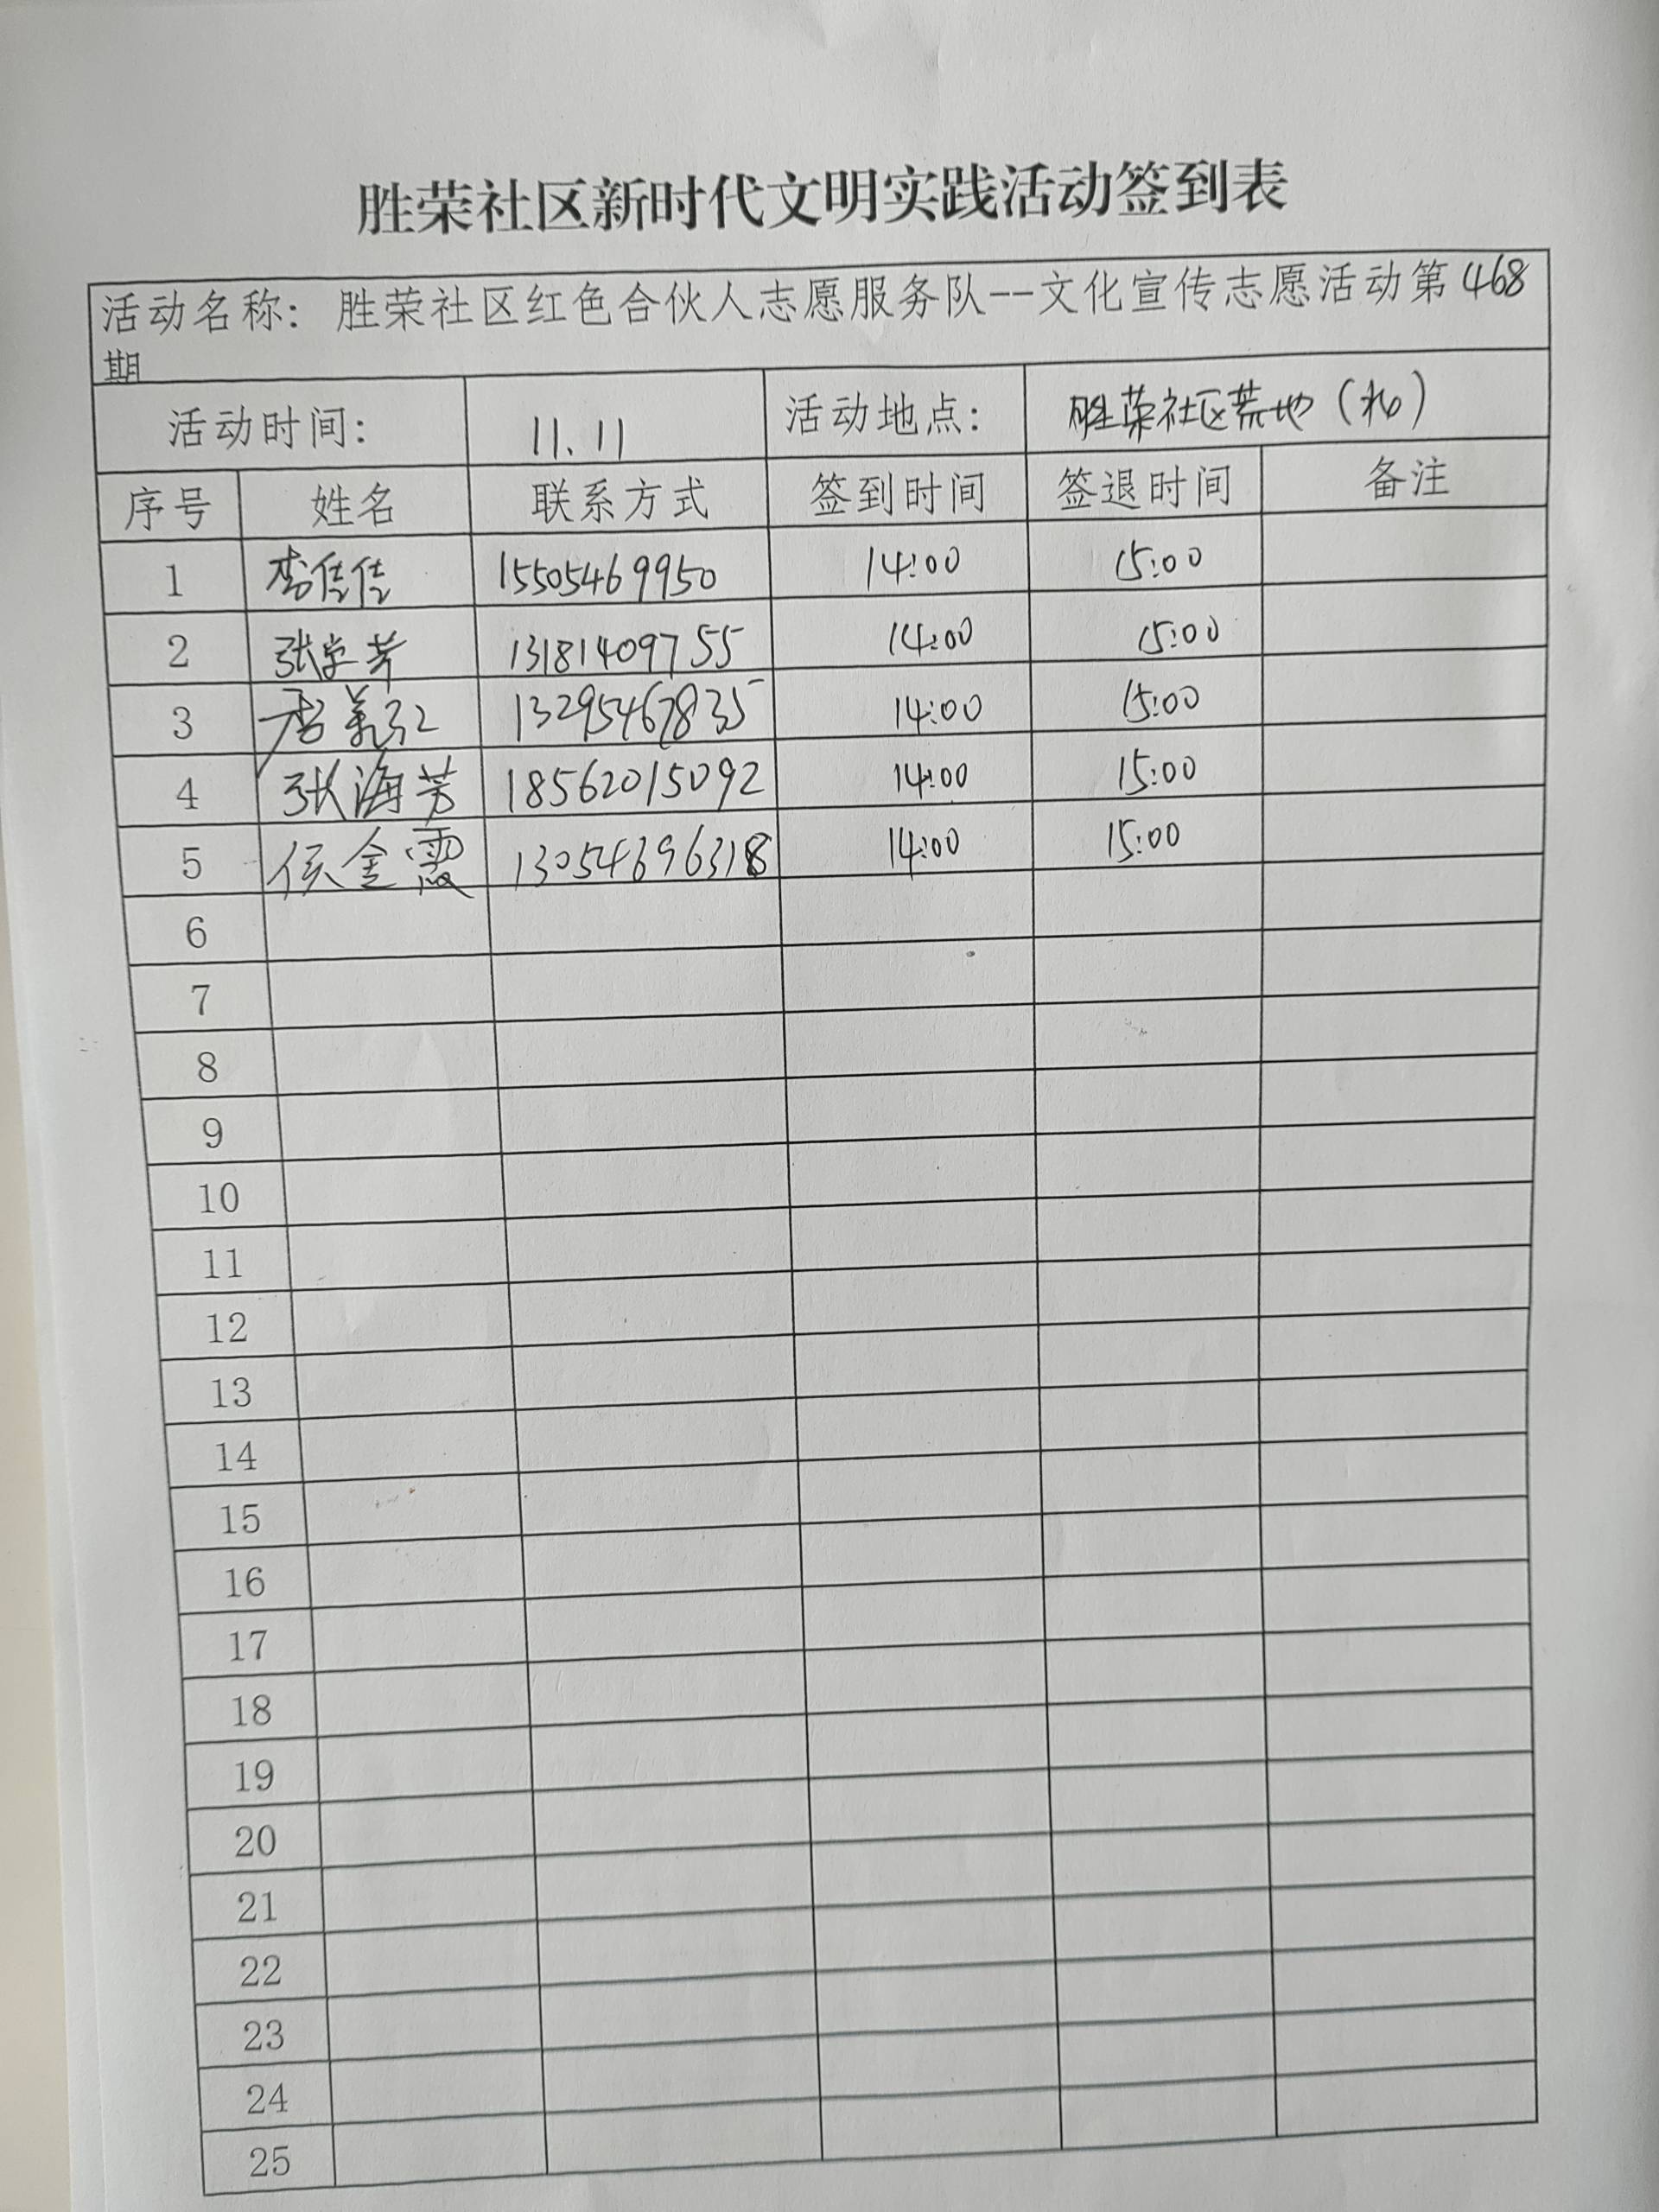 胜荣社区新时代文明实践活动签到表
活动名称：胜荣社区红色合伙人志愿服务队--文化宣传志愿活动第468
期
活动时间： 11.11 活动地点： 胜荣社区荒地（北）
序号 姓名 联系方式 签到时间 签退时间 备注
1 李佳佳 15505469950 14:00 15:00
2 张学芳 13181409755 14:00 15:00
3 13295467835 14:00 15:00
4 张海芳 18562015092 14:00 15:00
5 侯金霞 13054696318 14:00 15:00
6
7
8
9
10
11
12
13
14
15
16
17
18
19
20
21
22
23
24
25